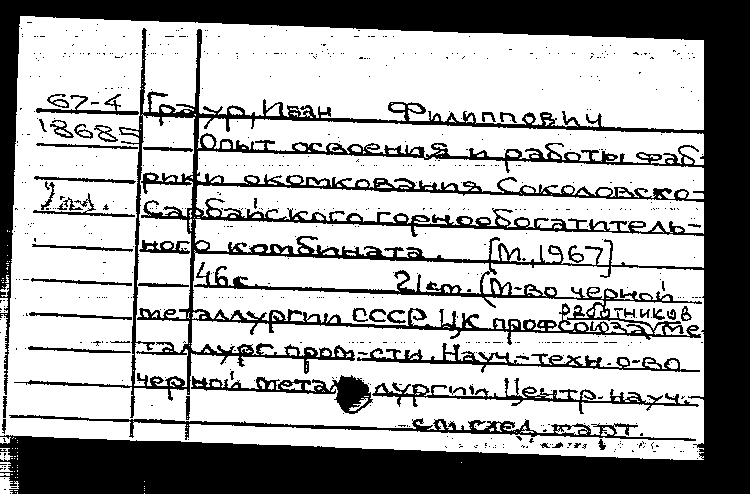 67-4 Граур, Иван Филиппович
18685 Опыт освоения и работы фаб-
рики окомкования Соколовско-
Сарбайского горнообогатитель-
ного комбината. [М., 1967].
46 с. 21 см. (М-во черной
металлургии СССР. ЦК профсоюза работников ме-
таллург. пром-сти. Науч.-техн. о-во
черной металлургии. Центр. науч.-
см. след. карт.